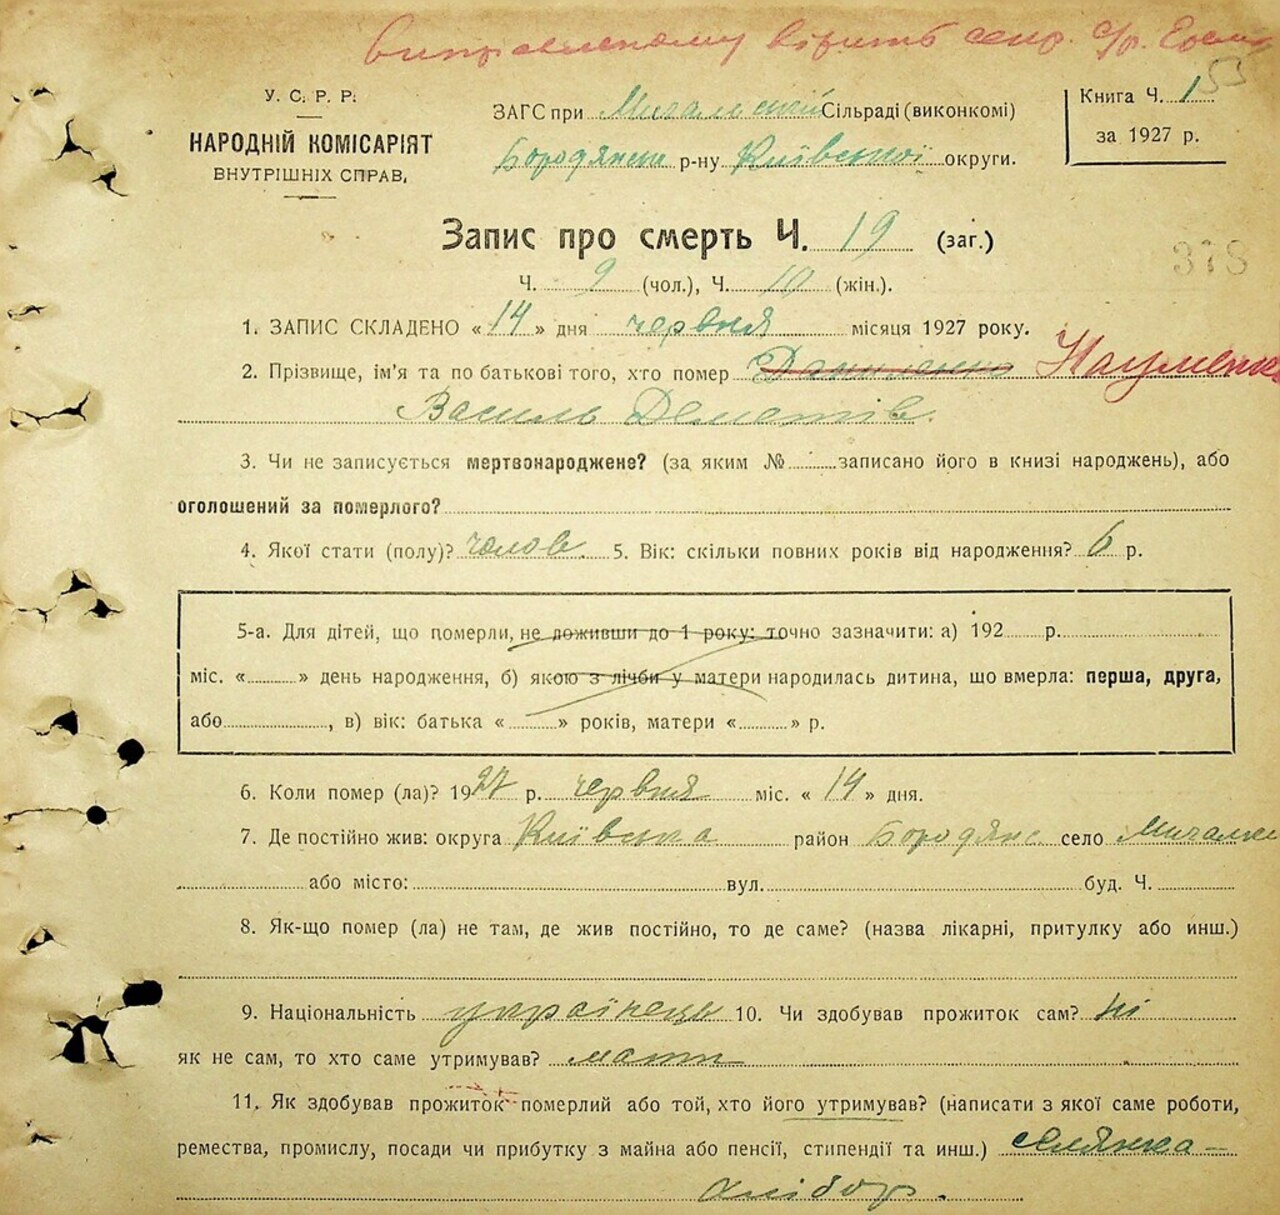 Виправленому вірить секр. с/р.
53
У. С. Р. Р.
НАРОДНІЙ КОМІСАРІЯТ
ВНУТРІШНІХ СПРАВ,
ЗАГС при Мигальській Сільраді (виконкомі)
Бородянськ р-ну Київської округи.
Книга Ч. 1
за 1927 р.
Запис про смерть Ч. 19 (заг.)
378
Ч. 9 (чол.), Ч. 10 (жін.).
1. ЗАПИС СКЛАДЕНО «14» дня червня місяця 1927 року.
2. Прізвище, ім'я та по батькові того, хто помер Даниленко Науменко
Василь Деметів.
3. Чи не записується мертвонароджене? (за яким № записано його в книзі народжень), або
оголошений за померлого?
4. Якої стати (полу)? чолов. 5. Вік: скільки повних років від народження? 6 р.
5-а. Для дітей, що померли, не доживши до 1 року: точно зазначити: а) 192 р.
міс. « » день народження, б) якою з лічби у матери народилась дитина, що вмерла: перша, друга,
або , в) вік: батька « » років, матери « » р.
6. Коли помер (ла)? 1927 р. червня міс. «14» дня.
7. Де постійно жив: округа Київська район Бородянс. село Мигалки
або місто: вул. буд. Ч.
8. Як-що помер (ла) не там, де жив постійно, то де саме? (назва лікарні, притулку або инш.)
9. Національність українець 10. Чи здобував прожиток сам? ні
як не сам, то хто саме утримував? мати
11. Як здобував прожиток померлий або той, хто його утримував? (написати з якої саме роботи,
ремества, промислу, посади чи прибутку з майна або пенсії, стипендії та инш.) селянка –
хлібор.